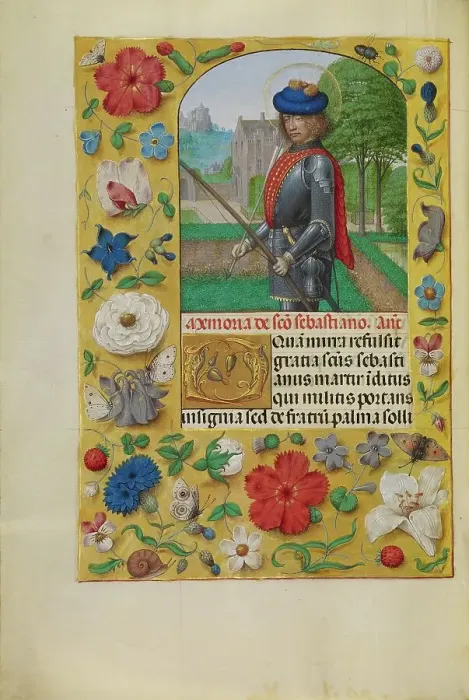 Memoria de sc̄o sebastiano. Añt
Quā mira refulsit
gratia sc̄us sebasti
anus martir iditus
qui militis portans
insignia sed de fratrū palma solli